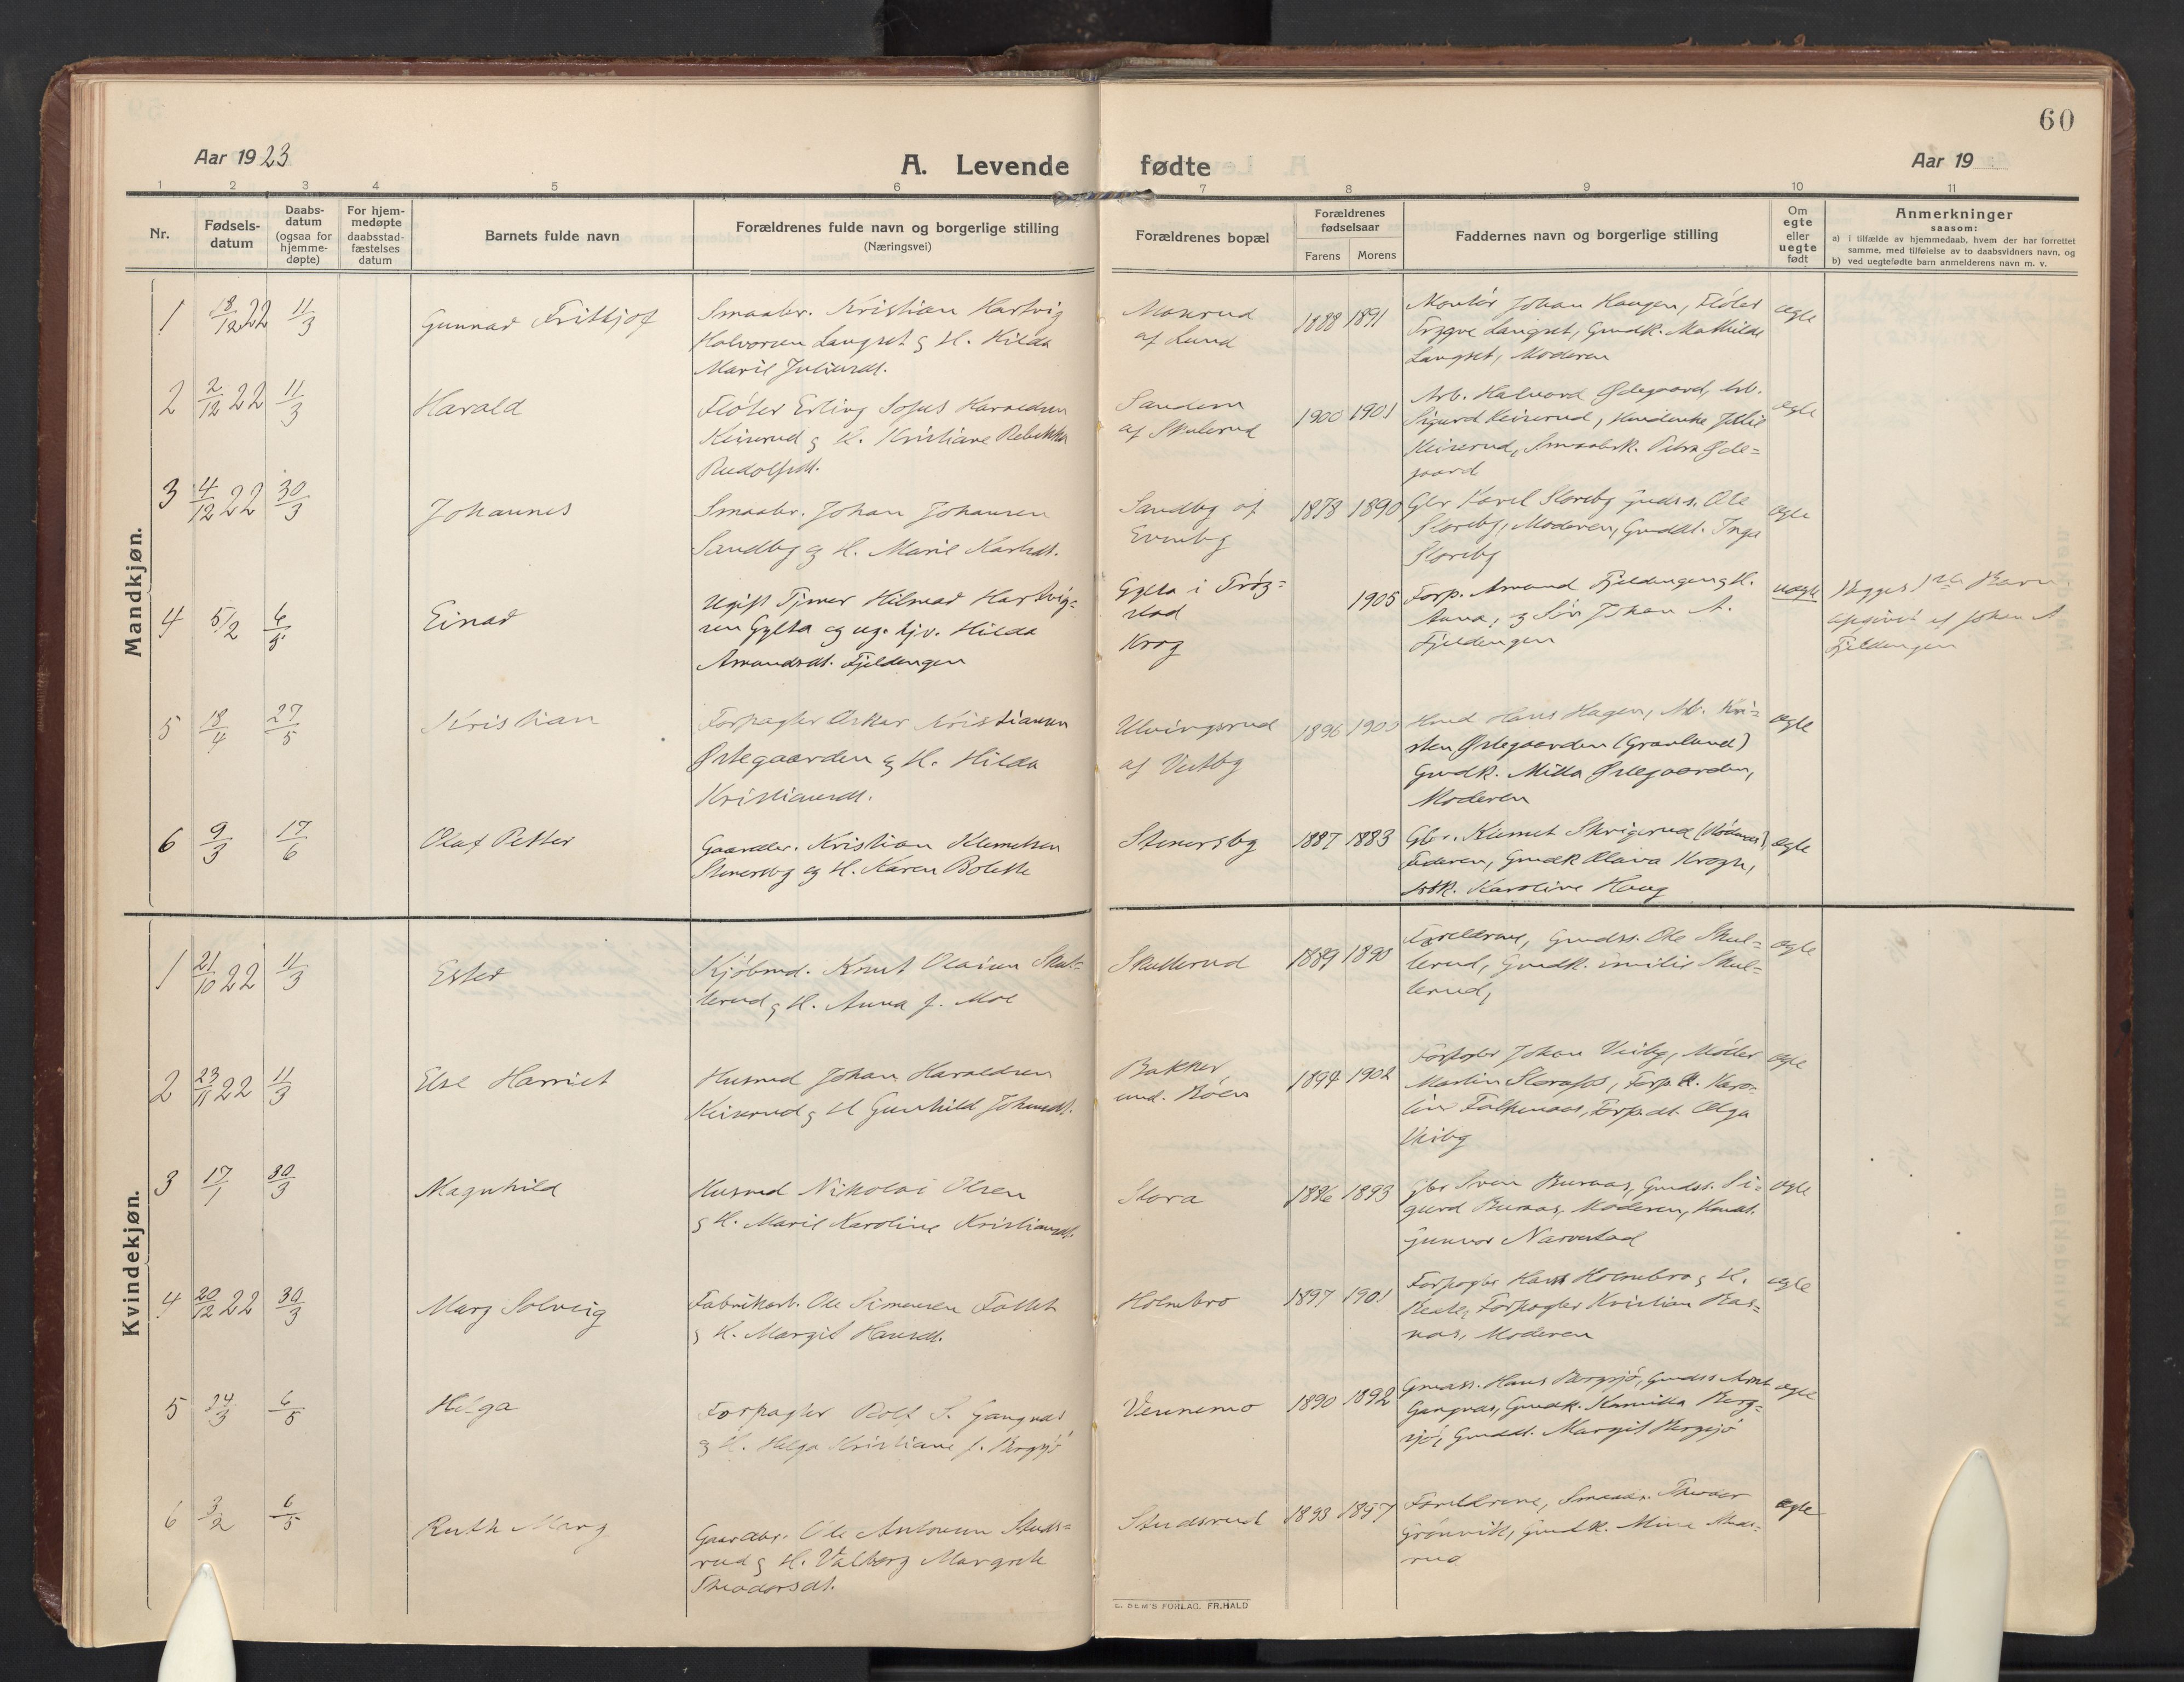 60
Aar 1923
A. Levende fødte
Aar 19
1 2 3 4 5 6 7 8 9 10 11
Nr.
Fødsels-
datum
Daabs-
datum
(ogsaa for
hjemme-
døpte)
For hjem-
medøpte
daabsstad-
fæstelses
datum
Barnets fulde navn
Forældrenes fulde navn og borgerlige stilling
(Næringsvei)
Forældrenes bopæl
Forældrenes
fødselsaar
Farens Morens
Faddernes navn og borgerlige stilling
Om
egte
eller
uegte
født
Anmerkninger
saasom:
a) i tilfælde av hjemmedaab, hvem der har forrettet
samme, med tilføielse av to daabsvidners navn, og
b) ved uegtefødte barn anmelderens navn m. v.
Mandkjøn.
1 18/12 22 11/3 Gunnar Frithjof
Smaabr. Kristian Hartvig
Halvorsen Langset & H. Hilda
Marie Juliusdt.
af Lund
1888 1891
Montør Johan Haugen, Fløter
Trygve Langset, Gmdk. Mathilde
Langset, Moderen
egte
2 2/12 22 11/3 Harald
Fløter Erling Sofus Haraldsen
Keiserud & H. Kristiane Rebekka
Rudolfsdt.
af Skulerud
1900 1901
Arb. Halvord Ødegaard, Arb.
Sigurd Keiserud,
Keiserud, Smaabrk. Petra Øde=
gaard
egte
3 4/12 22 30/3 Johannes
Smaabr. Johan Johansen
Sandbg og H. Marie Karlsdt.
Sandbg af
1878 1890
Gbr Karel Slorebg Gmdss. Ole
Slorebg, Moderen, Gmddt. Inga
Slorebg
egte
4 5/2 6/5 Einar
Ugift Tjener Hilmar Hartvig=
sen Gylta og ug. tjv. Hilda
Amandsdt. Fjeldengen
Gylta i Trøg=
stad
Krog
1905
Forp. Amand Fjeldengen & H.
Anna, & Søn Johan A.
Fjeldengen
uegte
Begges 1ste Barn
opgivet af Johan A
Fjeldengen
5 18/4 27/5 Kristian
Forpagter Oskar Kristiansen
Østegaarden & H. Hilda
Kristiansdt.
Ulvingsrud
af Vestby
1896
Hmd Hans Hagen, Arb. Kri=
sten Østegaarden (Grønland)
Gmdk. Milla Østegaarden,
Moderen
egte
6 9/3 17/6 Olaf Petter
Gaardbr. Kristian Klemetsen
Stenersbg og H. Karen Bolette
Stenersbg
1887 1883
Gbr. Klemet Skrigsrud (Rødenes)
Faderen, Gmdk Olava Krogh,
Karoline Haug
egte
Kvindekjøn.
1 21/10 22 11/3 Ester
Kjøbmd. Knut Olaisen Skul=
lerud & H. Anna f. Moe
Skullerud
1889 1890
Forældrene, Gmdss. Ole Skul=
lerud, Gmdk. Emilie Skul=
lerud,
egte
2 23/11 22 11/3 Else Harriet
Husmd Johan Haraldsen
Keiserud & H Gunhild Johansdt.
Bakker
und. Bøen
1894 1902
Forpagter Johan Veibg, Møller
Martin Slorafos, Forp. K. Karo=
line Falkenaas, Forp.dt. Olga
Veibg
egte
3 17/1 30/3 Magnhild
Husmd Nikolai Olsen
& H. Marie Karoline Kristiansdt.
Slora
1886 1893
Gbr Svein Buraas, Gmdss. Si=
gurd Buraas, Moderen,
Gunvor Narvestad
egte
4 20/12 22 30/3 Marg Solveig
Fabrikarb. Ole Simensen Tallet
& H. Margit Hansdt.
Holmbro
1897 1901
Forpagter Hans Holmebro & H.
Beate, Forpagter Kristian Bas=
naas, Moderen
egte
5 24/3 6/5 Helga
Forpagter Rolf S. Gangnæs
& H. Helga Kristiane f. Bergsjø
Vennemo
1890 1892
Gmdss. Hans Bergsjø, Gmdss Arnt
Gangnæs, Gmdk. Kamilla Berg=
sjø, Gmddt. Margit Bergsjø
egte
6 3/2 6/5 Ruth Marg
Gaardbr. Ole Antonsen Studs=
rud & H. Valborg Margrete
Theodorsdt.
Studsrud
1893 1897
Forældrene, Smaabr. Theodor
Grønvik, Gmdk. Mina Studs=
rud
egte
E. SEM'S FORLAG. FR.HALD